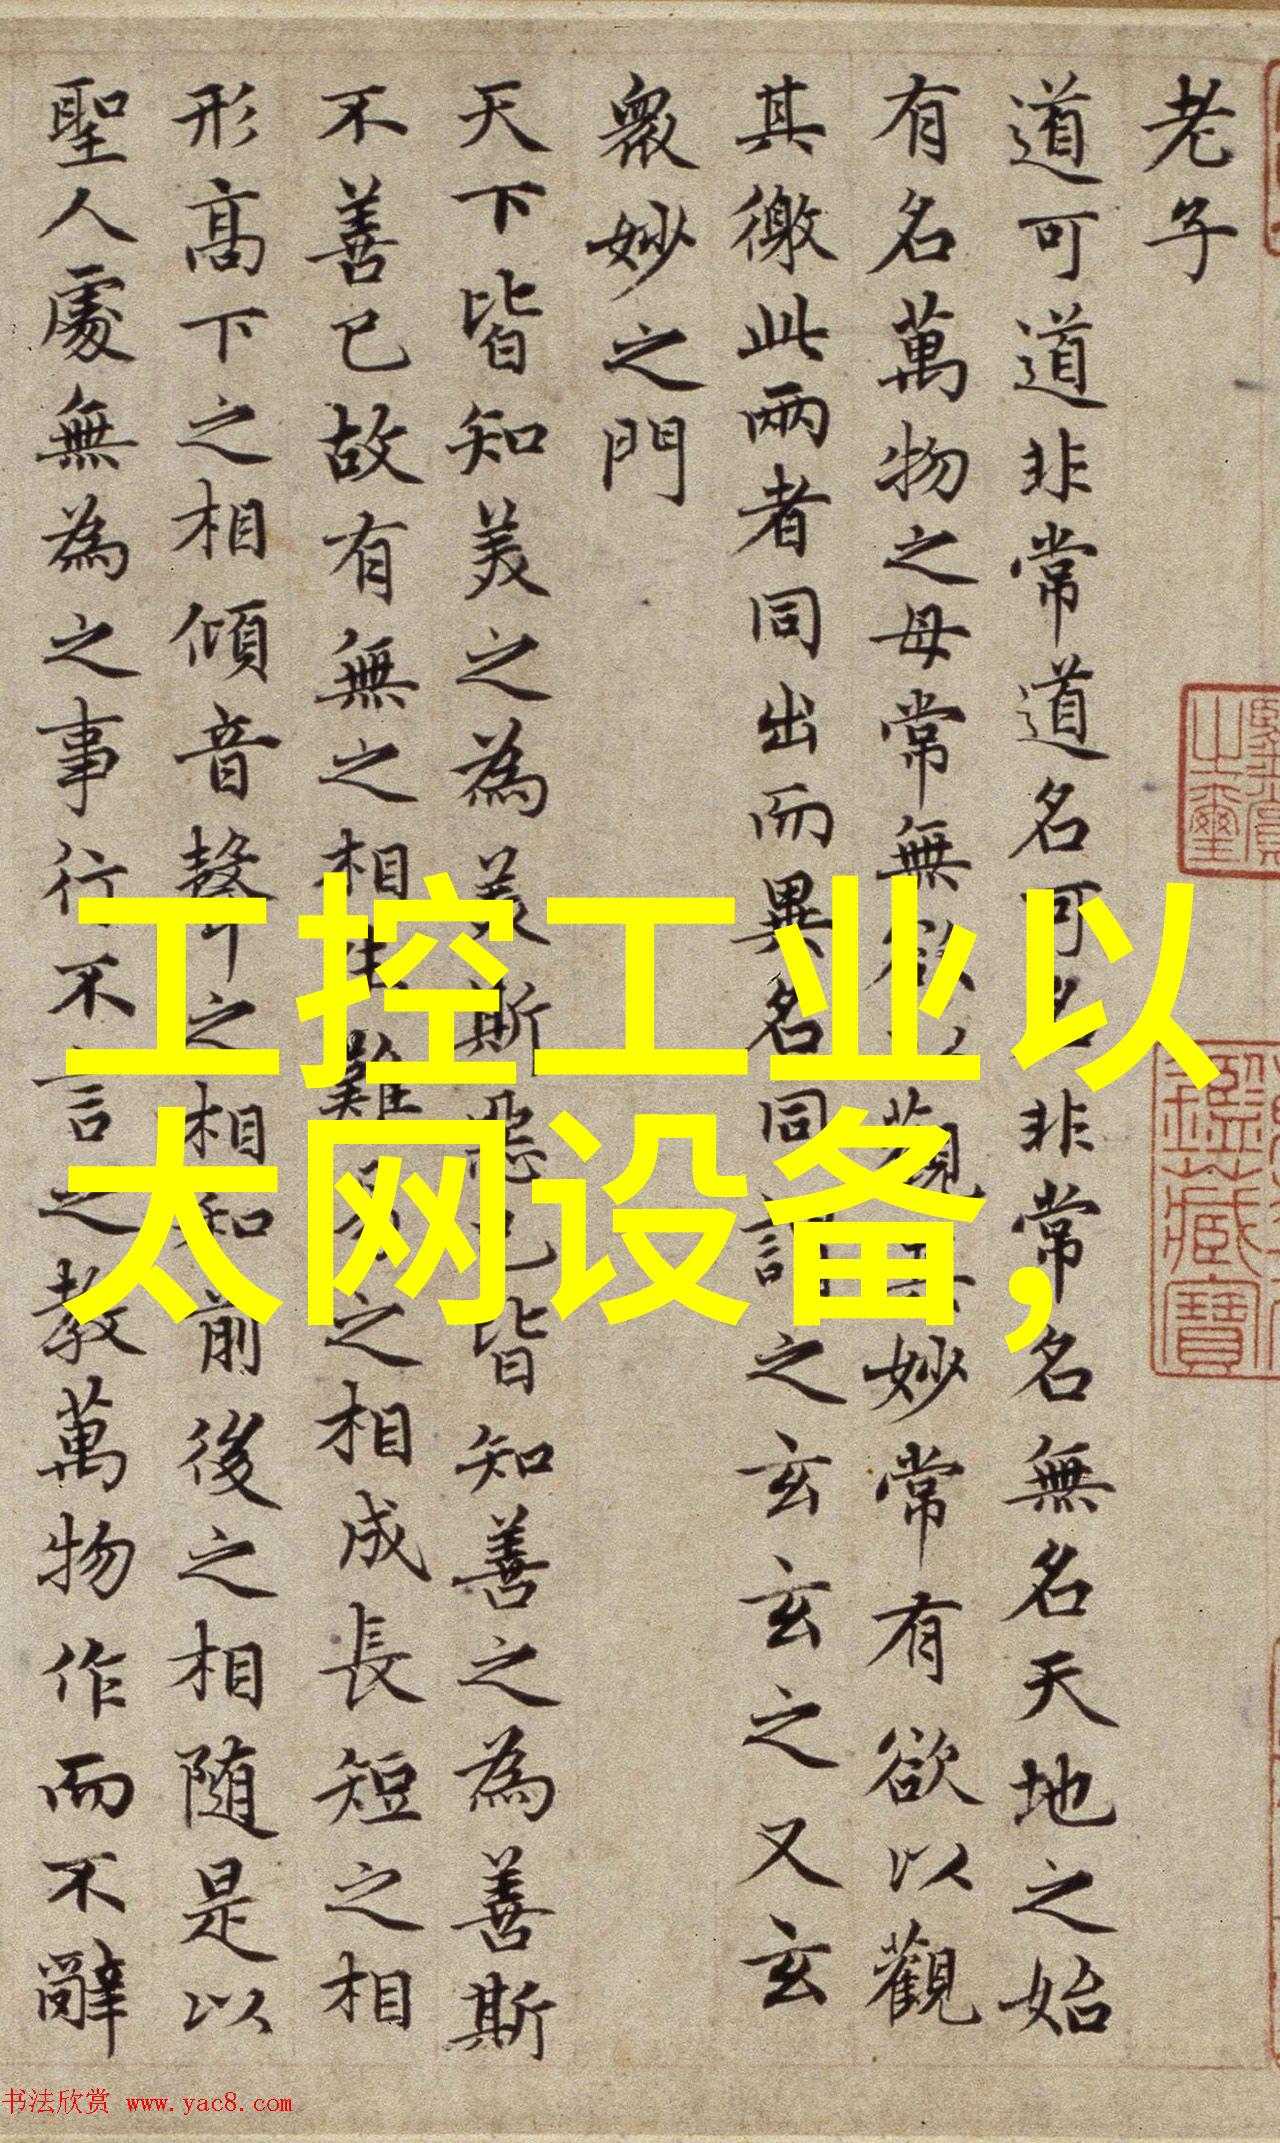 老子
道可道非常道名可名非常名無名天地之始
有名萬物之母常無欲以觀其妙常有欲以觀
其徼此兩者同出而異名同謂之玄玄之又玄
衆妙之門
天下皆知美之為美斯惡已皆知善之為善斯
不善已故有無之相生難易之相成長短之相
形高下之相傾音聲之相和前後之相隨是以
聖人處無為之事行不言之教萬物作而不辭
工控工业以
太网设备，
鑑藏寶
书法欣赏 www.yac8.com